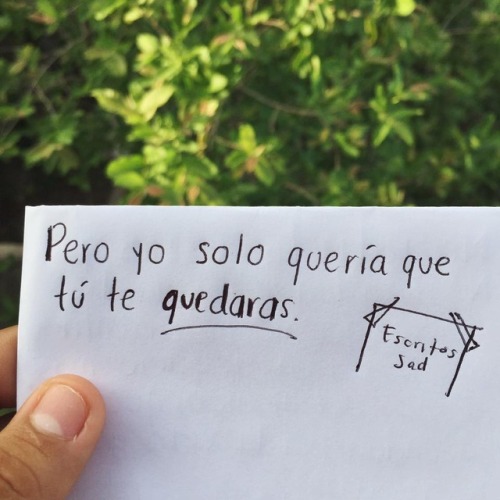 Pero yo solo quería que
tú te quedaras.
Escritos
Sad